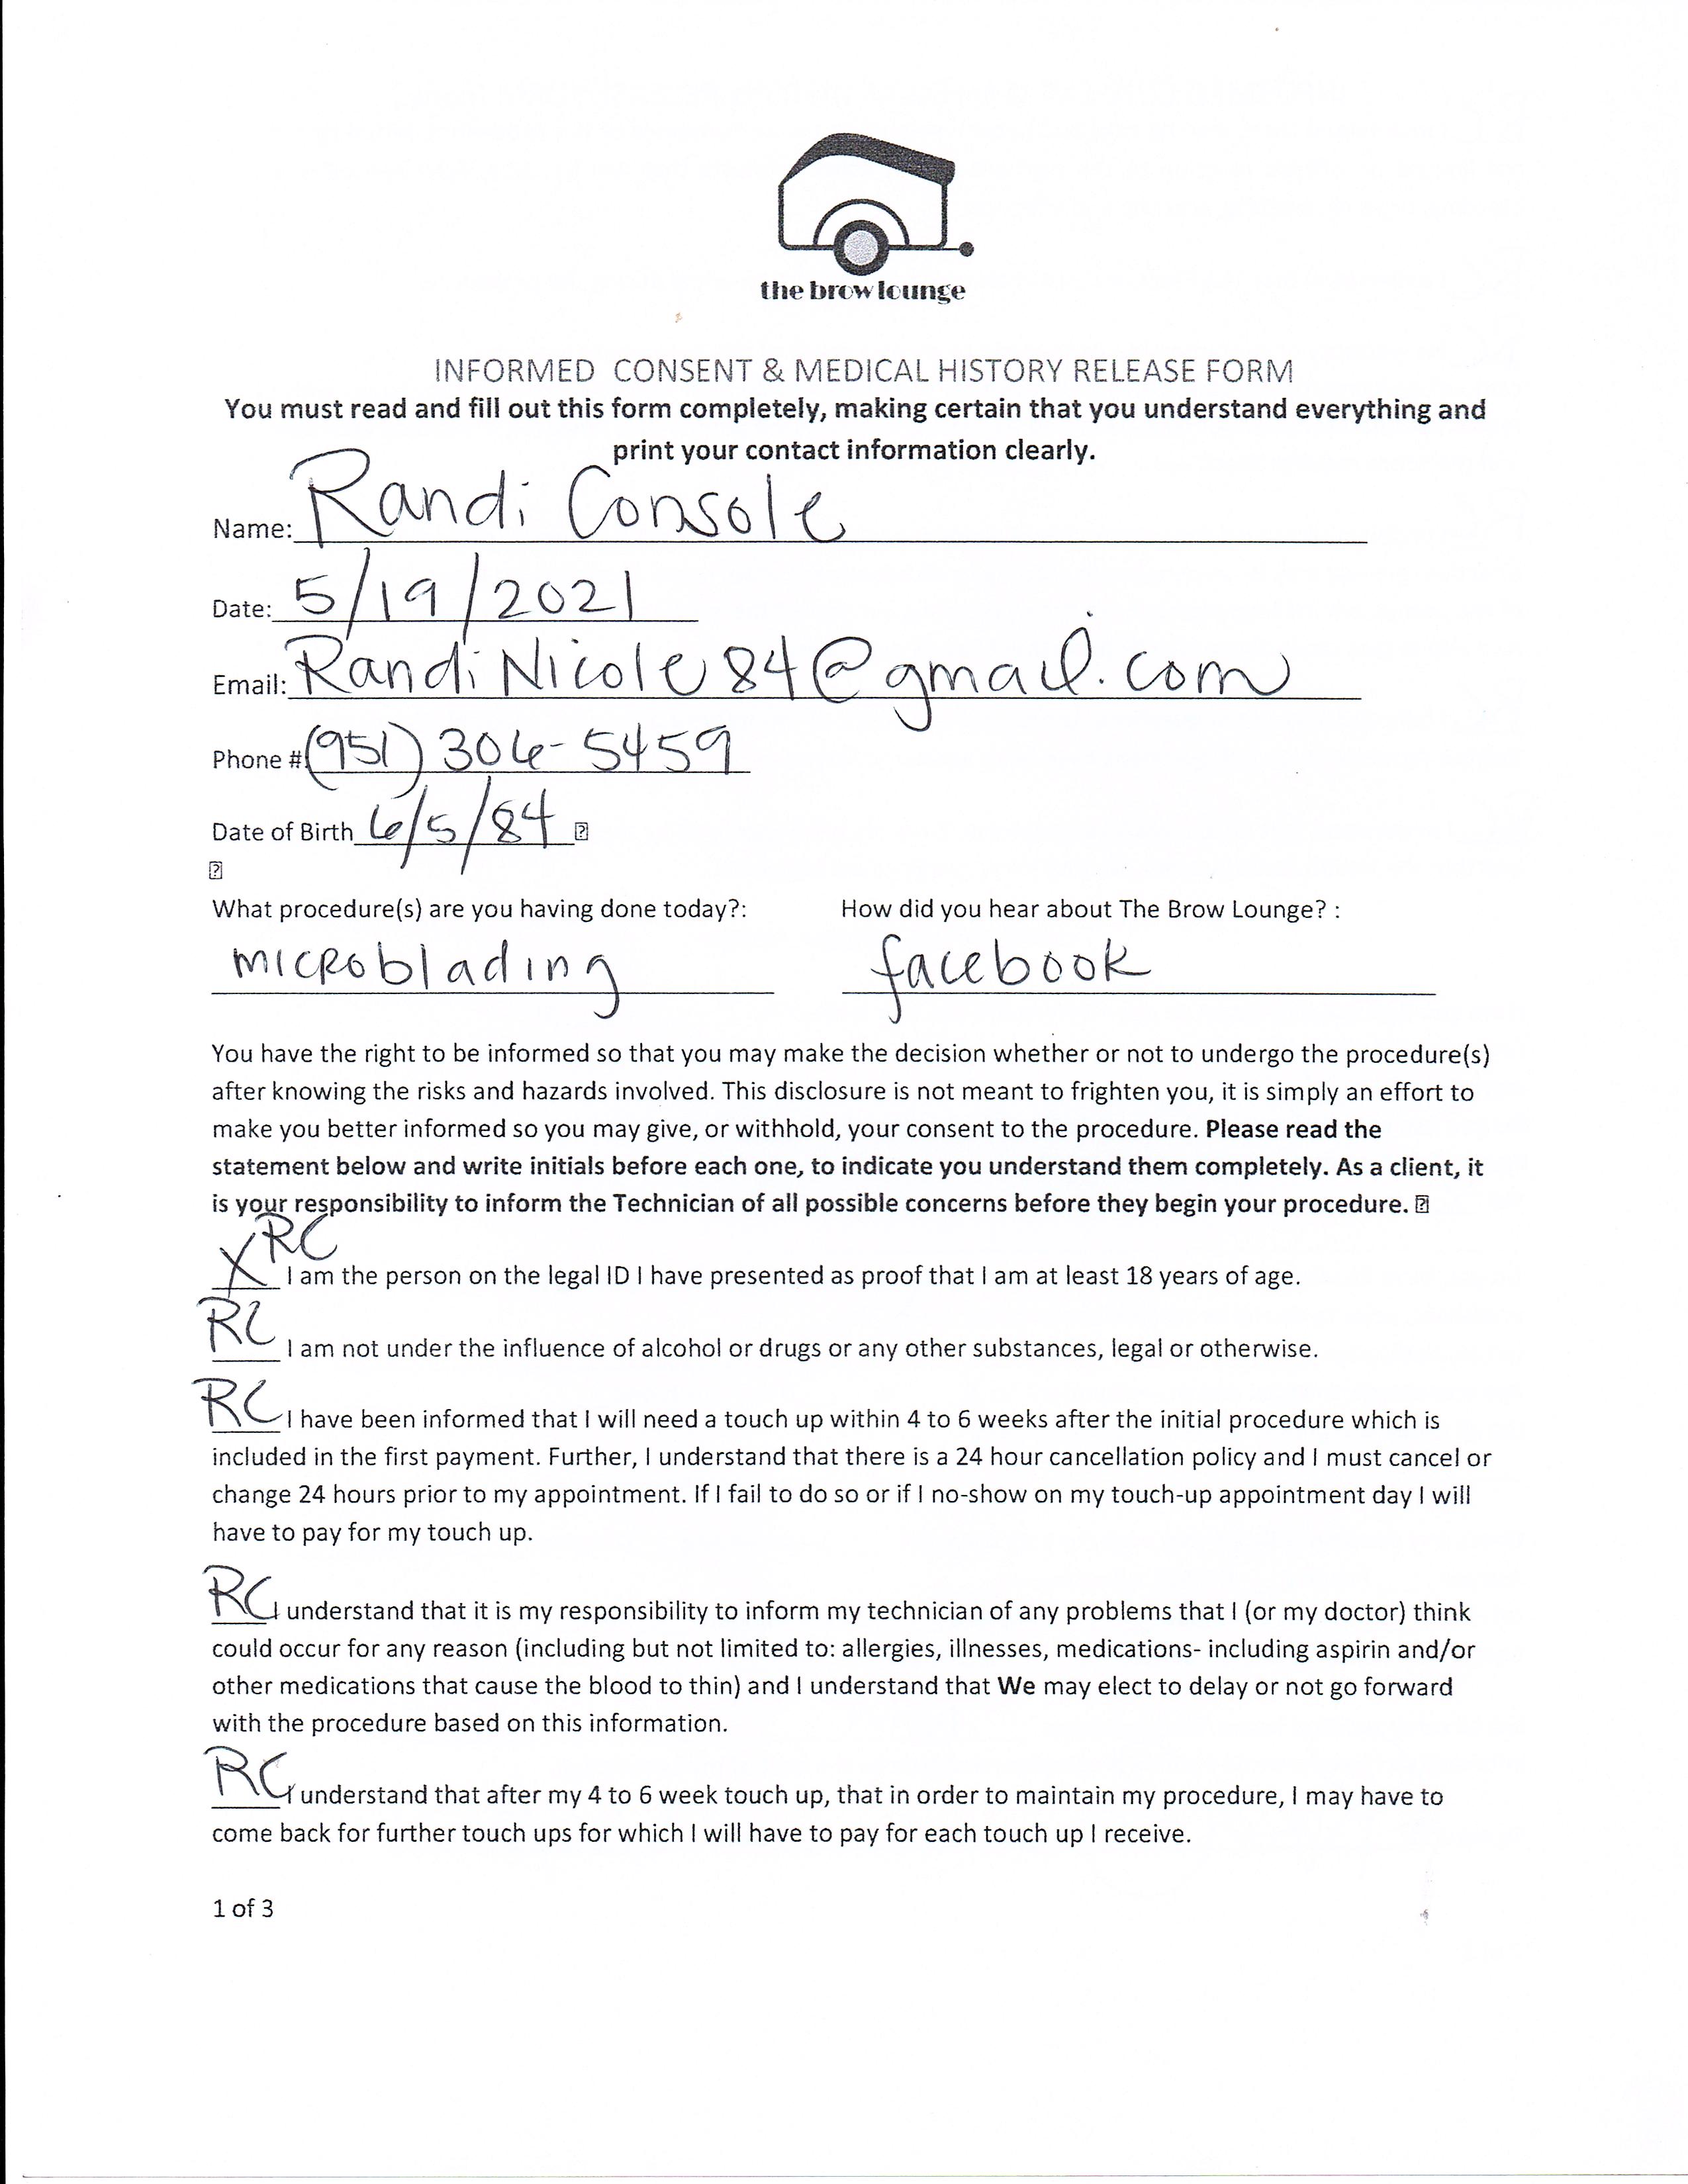 the brow lounge
INFORMED CONSENT & MEDICAL HISTORY RELEASE FORM
You must read and fill out this form completely, making certain that you understand everything and
print your contact information clearly.
Name: Randi Console
Date: 5/19/2021
Email: RandiNicole84@gmail.com
Phone # (951) 306-5459
Date of Birth 6/5/84
What procedure(s) are you having done today?: How did you hear about The Brow Lounge? :
microblading facebook
You have the right to be informed so that you may make the decision whether or not to undergo the procedure(s)
after knowing the risks and hazards involved. This disclosure is not meant to frighten you, it is simply an effort to
make you better informed so you may give, or withhold, your consent to the procedure. Please read the
statement below and write initials before each one, to indicate you understand them completely. As a client, it
is your responsibility to inform the Technician of all possible concerns before they begin your procedure.
X RC I am the person on the legal ID I have presented as proof that I am at least 18 years of age.
RC I am not under the influence of alcohol or drugs or any other substances, legal or otherwise.
RC I have been informed that I will need a touch up within 4 to 6 weeks after the initial procedure which is
included in the first payment. Further, I understand that there is a 24 hour cancellation policy and I must cancel or
change 24 hours prior to my appointment. If I fail to do so or if I no-show on my touch-up appointment day I will
have to pay for my touch up.
RC I understand that it is my responsibility to inform my technician of any problems that I (or my doctor) think
could occur for any reason (including but not limited to: allergies, illnesses, medications- including aspirin and/or
other medications that cause the blood to thin) and I understand that We may elect to delay or not go forward
with the procedure based on this information.
RC I understand that after my 4 to 6 week touch up, that in order to maintain my procedure, I may have to
come back for further touch ups for which I will have to pay for each touch up I receive.
1 of 3